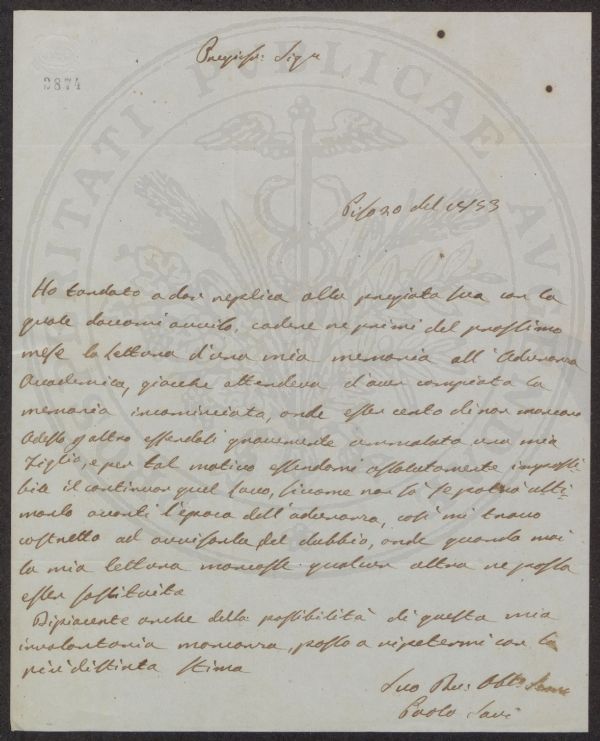 3874
Pregiatis: Sigre
Pisa 20 del 1853
Ho tardato a dar replica alla pregiata sua con la
quale davami avviso, cadere ne primi del prossimo
mese la lettura d'una mia memoria all'Adunanza
Accademica, giacchè attendeva d'aver compiata la
memoria incominciata, onde esser certo di non mancare
Adesso essendosi gravemente ammalata una mia
Figlia, e per tal motivo essendomi assolutamente impossi-
bile il continuar quel lavo, siccome non sò se potrò ulti-
marlo avanti l'epoca dell'adunanza, così mi trovo
costretto ad avvisarla del dubbio, onde quando mai
la mia lettura mancasse qualcun altra ne possa
esser sostituita
Dispiacente anche della possibilità di questa mia
involontaria mancanza, passo a ripetermi con la
più distinta stima
Suo Obbl
Paolo Savi
PROSPERITATI PUBLICAE AUGENDAE